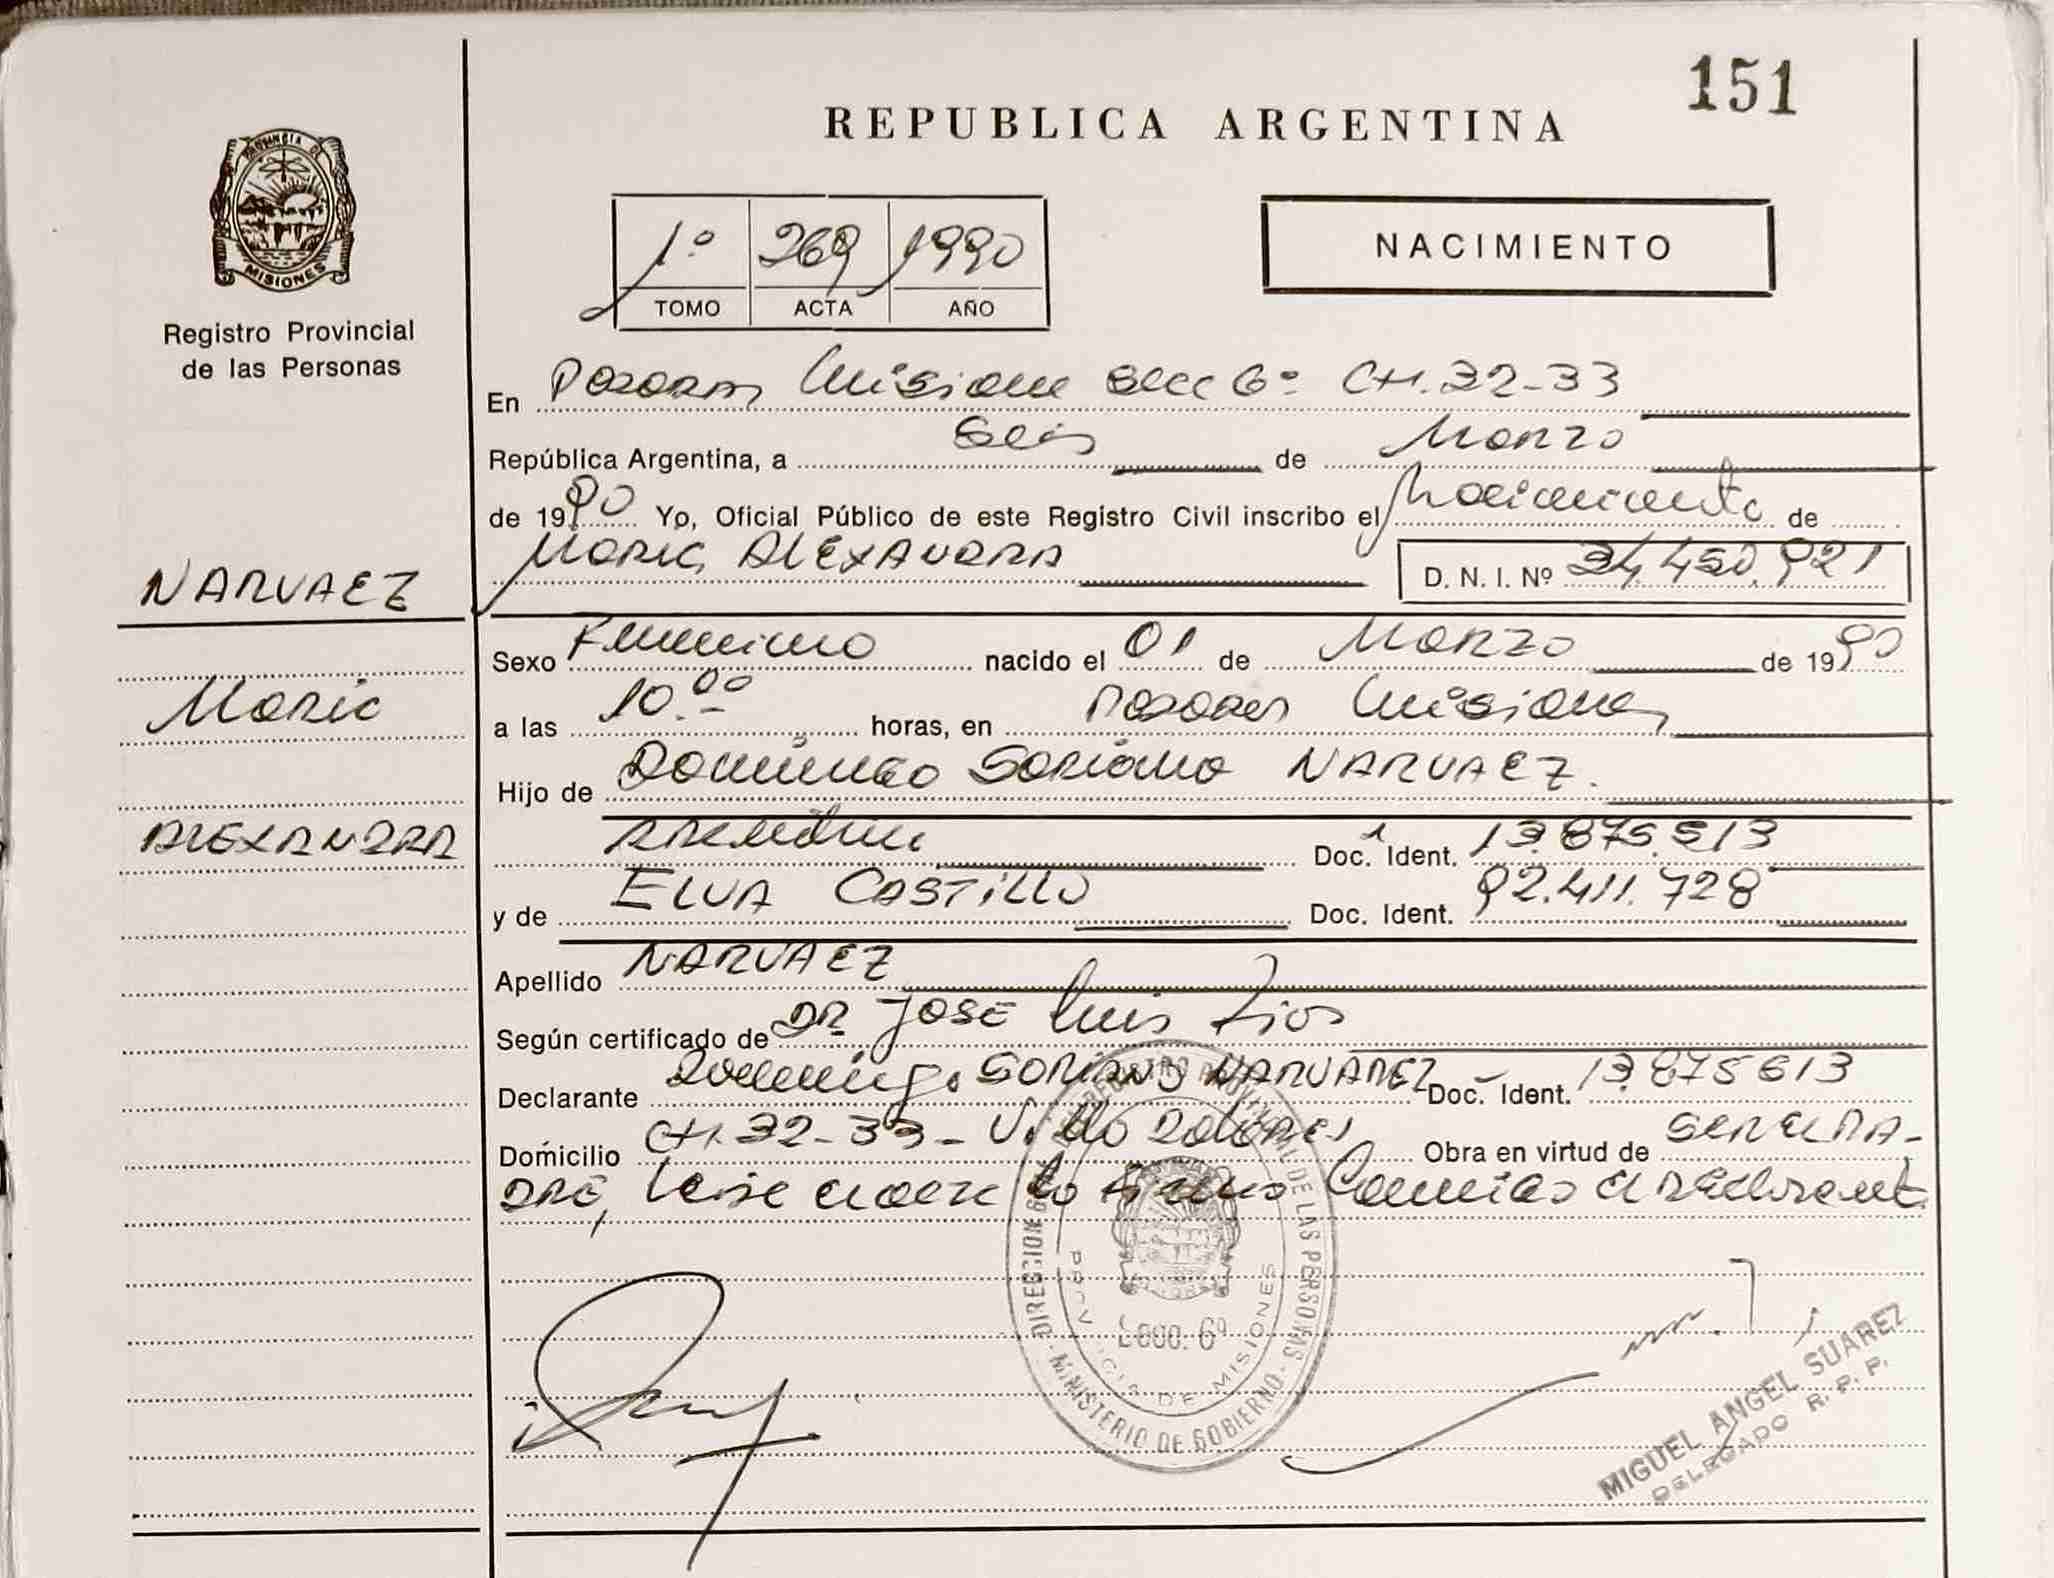 151
REPUBLICA ARGENTINA
PROVINCIA DE
MISIONES
Registro Provincial
de las Personas
1º 269 1990
TOMO ACTA AÑO
NACIMIENTO
En Posadas Misiones Secc 6º CH. 32-33
República Argentina, a Seis de Marzo
de 1990 Yo, Oficial Público de este Registro Civil inscribo el Nacimiento de
NARVAEZ
Maria ALEXANDRA D. N. I. Nº 34.450.921
Sexo Femenino nacido el 01 de Marzo de 1990
Maria
a las 10.00 horas, en Posadas Misiones
Hijo de Domingo Soriano NARVAEZ.
ALEXANDRA
Doc. Ident. 13.875.513
y de ELVA CASTILLO Doc. Ident. 92.411.728
Apellido NARVAEZ
Según certificado de DR. JOSE Luis Rios
Declarante Domingo SORIANO NARVAEZ Doc. Ident. 13.875613
Domicilio CH. 32-33 - Obra en virtud de SER EL PA-
DRE, Leise el acta la firma el declarante
DIRECCION REGISTRO PROVINCIAL DE LAS PERSONAS
MINISTERIO DE GOBIERNO
PROVINCIA DE MISIONES
Secc. 6º
MIGUEL ANGEL SUAREZ
DELEGADO R. P. P.